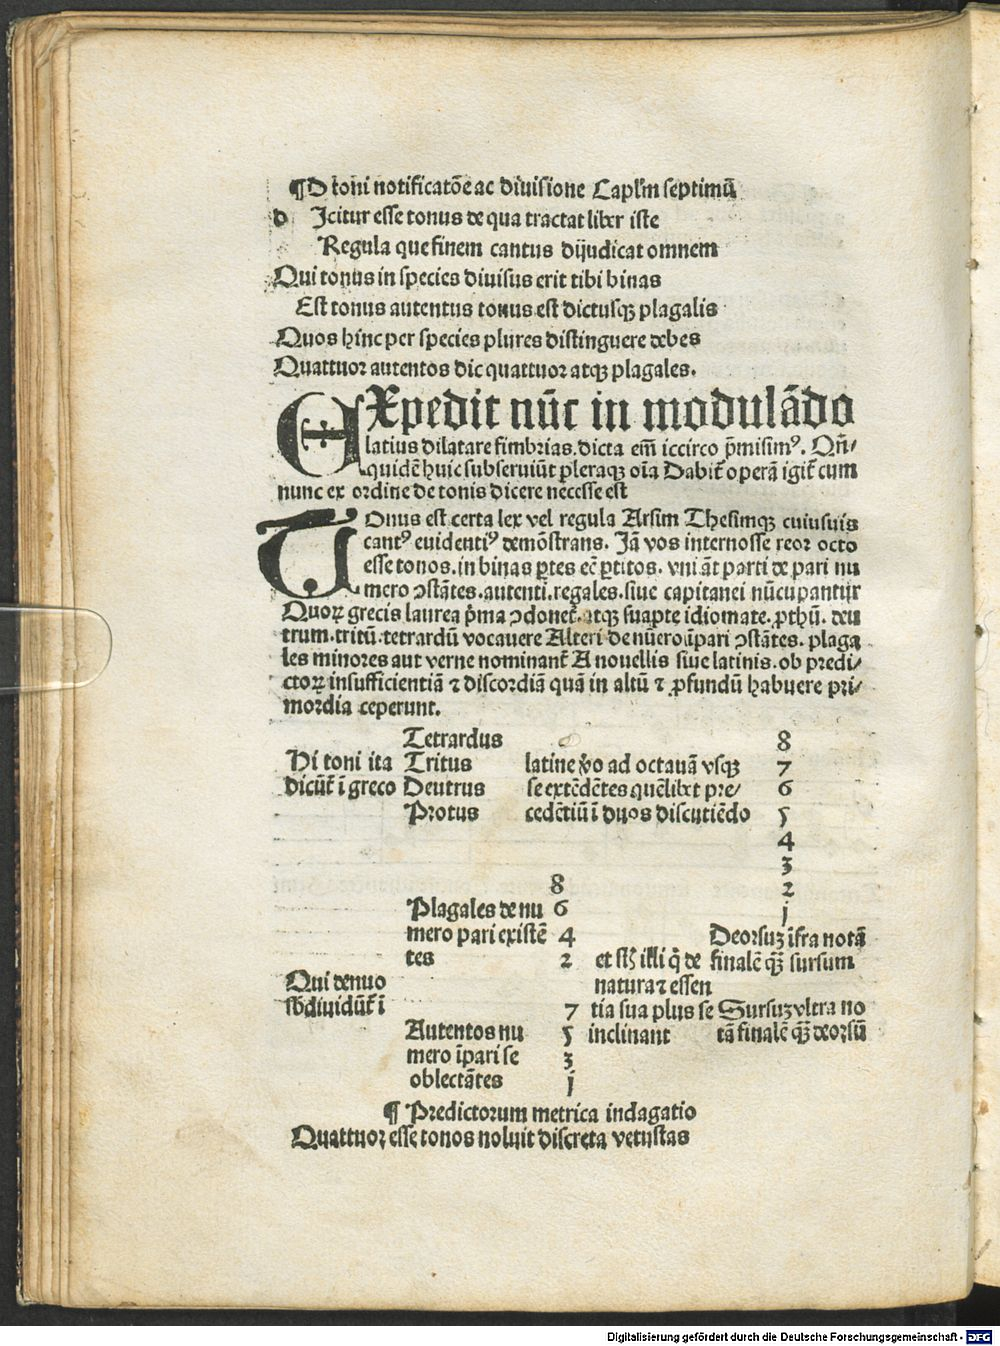 ¶D toni notificatõe ac diuisione Caplm septimũ
d Icitur esse tonus de qua tractat liber iste
Regula que finem cantus dijudicat omnem
Qui tonus in species diuisus erit tibi binas
Est tonus autentus tonus est dictusqꝫ plagalis
Quos hinc per species plures distinguere debes
Quattuor autentos dic quattuor atqꝫ plagales.
EXpedit nũc in modulãdo
latius dilatare fimbrias. dicta em̃ iccirco p̃misimꝰ. Qñ/
quidẽ huic subseruiũt pleraqꝫ oĩa Dabit̃ operã igit̃ cum
nunc ex ordine de tonis dicere necesse est
TOnus est certa lex vel regula Arsim Thesimqꝫ cuiusuis
cantꝰ euidentiꝰ demõstrans. Jã vos internosse reor octo
esse tonos. in binas ꝑtes eẽ ꝑtitos. vni ãt parti de pari nu
mero ↄstãtes. autenti. regales. siue capitanei nũcupantur
Quoꝝ grecis laurea p̃ma ↄdonet̃. atqꝫ suapte idiomate. ꝓthũ. deu
trum. tritũ. tetrardũ vocauere Alteri de nũero ĩpari ↄstãtes. plaga
les minores aut verne nominant̃ A nouellis siue latinis. ob predi/
ctoꝝ insufficientiã ⁊ discordiã quã in altũ ⁊ ꝓfundũ habuere pri/
mordia ceperunt.
Tetrardus 8
Hi toni ita Tritus latine ṽo ad octauã vsqꝫ 7
dicũt̃ ĩ greco Deutrus se extẽdẽtes quẽlibet pre/ 6
Protus cedẽtiũ ĩ duos discutiẽdo 5
4
3
2
8 j
Plagales de nu 6
mero pari existẽ 4 Deorsuꝫ ĩfra notã
tes 2 et illi q̃ de finalẽ qꝫ̃ sursum
Qui denuo natura ⁊ essen
sb̃diuidũt̃ ĩ 7 tia sua plus se Sursuꝫ vltra no
Autentos nu 5 inclinant tã finalẽ qꝫ̃ deorsũ
mero ĩpari se 3
oblectãtes j
¶ Predictorum metrica indagatio
Quattuor esse tonos noluit discreta vetustas
Digitalisierung gefördert durch die Deutsche Forschungsgemeinschaft - DFG